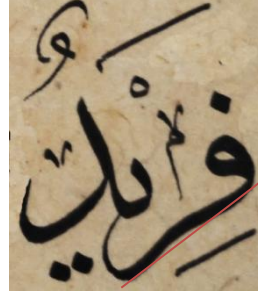 فَرِيْدٌ